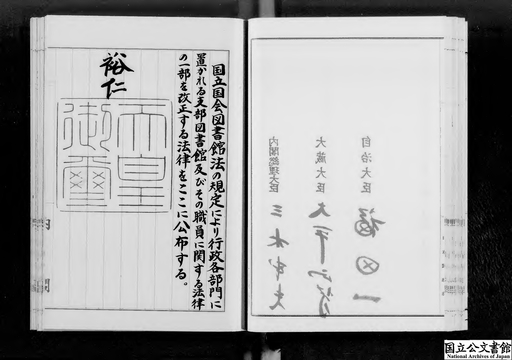 国立国会図書館法の規定により行政各部門に
置かれる支部図書館及びその職員に関する法律
の一部を改正する法律をここに公布する。
裕仁
天皇
御璽
内閣総理大臣
三木武夫
大蔵大臣
大平正芳
自治大臣
福田一
国立公文書館
National Archives of Japan